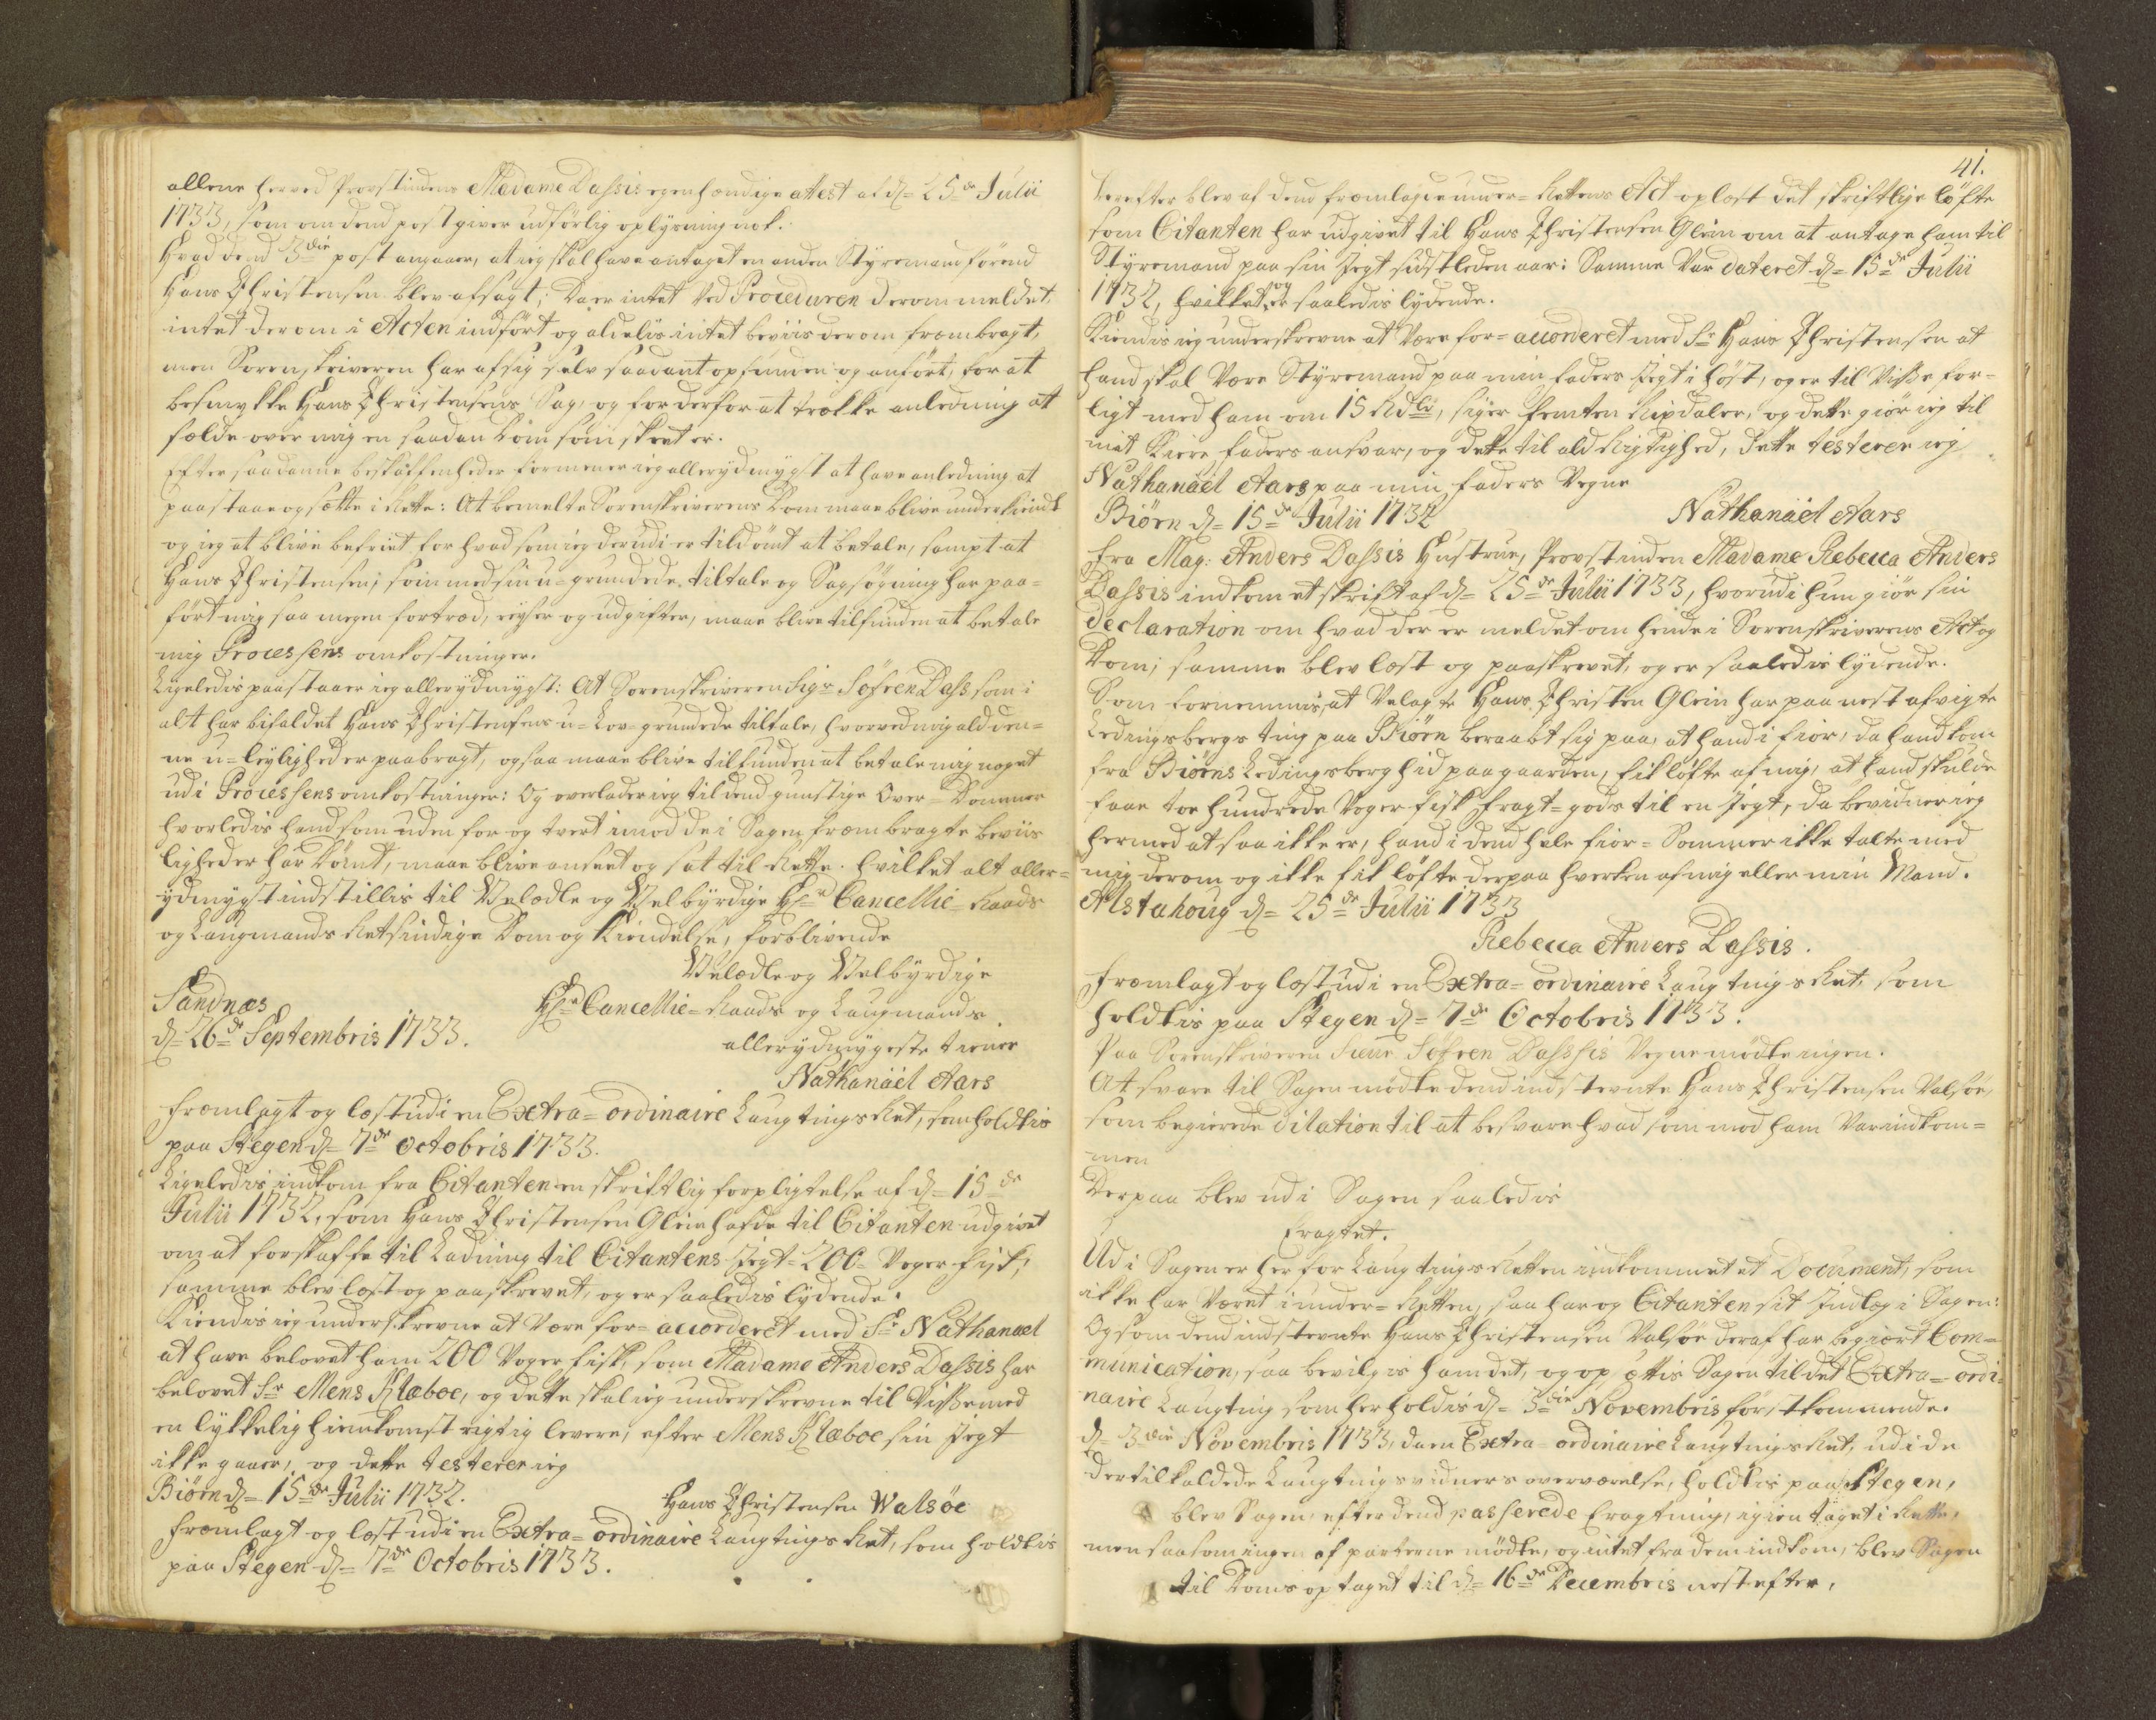 allene herved Provstindens Madame Dassis egenhændige attest af d= 25de Julii
1733, som om dend post giver udförlig oplysning nok.
Hvad dend 3die post angaaer, at ieg skal have antaget en anden Styremand förend
Hans Christensen blev afsagt; Da er intet ved Proceduren derom meldet,
intet derom i Acten indfört og aldelis intet beviis derom frembragt,
men Sorenskriveren har af sig selv saadant opfunden og anfört, for at
besmykke Hans Christensens Sag, og for derfor at trække anledning at
fælde over mig en saadan Dom som skeet er.
Efter saadanne beskaffenheder formener ieg allerydmygst at have anledning at
paastaae og sætte i Rette: At bemelte Sorenskriverens Dom maae blive underkiendt
og ieg at blive befriet for hvad som ieg derudi er tildömt at betale, sampt at
Hans Christensen, som med sin u=grundede tiltale og Sagsögning har paa=
fört mig saa megen fortræd, reyser og udgifter, maae blive tilfunden at betale
mig Processens omkostninger.
Ligeledis paastaaer ieg allerydmygst: At Sorenskriveren Sigr Söfren Dass, som i
alt har bifaldet Hans Christensens u=Lov=grundede tiltale, hvorved mig ald den=
ne u=leylighed er paabragt, ogsaa maae blive tilfunden at betale mig noget
udi Processens omkostninger: Og overlader ieg til dend gunstige Over=Dommer
hvorledis hand som uden for og tvert imod de i Sagen frembragte beviis
ligheder har Dömt, maae blive anseet og sat til Rette. hvilket alt aller=
ydmygst indstillis til Velædle og Velbyrdige Hr Cancellie=Raads
og Laugmands Retsindige Dom og Kiendelse, forblivende
Velædle og Velbyrdige
Sandnæs Hr Cancellie=Raads og Laugmands
d= 26de Septembris 1733. allerydmygeste tiener
Nathanäel Aars
Fremlagt og læst udi en Extra=ordinaire Laugtings Ret, som holdtis
paa Stegen d= 7de Octobris 1733.
Ligeledis indkom fra Citanten en skriftlig forpligtelse af d= 15de
Julii 1732, som Hans Christensen Glein hafde til Citanten udgivet
om at forskaffe til Ladning til Citantens Jegt=200= Voger fisk,
samme blev læst og paaskrevet, og er saaledis lydende.
Kiendis ieg underskrevne at være for=accorderet med Sr Nathanael
at have belovet ham 200 Voger fisk, som Madame Anders Dassis har
belovet Sr Mens Klæboe, og dette skal ieg underskrevne til Visse med
en lykkelig hiemkomst rigtig levere, efter Mens Klæboe sin Jegt
ikke gaaer, og dette testerer ieg
Biörn d= 15de Julii 1732. Hans Christensen Walsöe
Fremlagt og læst udi en Extra=ordinaire Laugtings Ret, som holdtis
paa Stegen d= 7de Octobris 1733.
41.
Derefter blev af dend fremlagde under=Rettens Act oplæst det skriftlige löfte
som Citanten har udgivet til Hans Christensen Glein om at antage ham til
Styremand paa sin Jegt sidstleden aar: Samme var dateret d= 15de Julii
1732, hvilket og er saaledis lydende.
Kiendis ieg underskrevne at være for=accorderet med Sr Hans Christensen at
hand skal være Styremand paa min faders Jegt i höst, og er til Visse for=
ligt med ham om 15 Rdlr, siger femten Rixdaler, og dette giör ieg til
mit Kiere faders ansvar, og dette til ald Rigtighed, Dette testerer ieg
Nathanäel Aars paa min faders Vegne
Biörn d= 15de Julii 1732 Nathanäel Aars
Fra Mag: Anders Dassis Hustrue, Provstinden Madame Rebecca Anders
Dassis indkom et skrift af d= 25de Julii 1733, hvorudi hun giör sin
declaration om hvad der er meldet om hende i Sorenskriverens Act og
Dom; samme blev læst og paaskrevet, og er saaledis lydende.
Som fornemmis, at Velagte Hans Christen Glein har paa nest afvigte
Ledingsbergs ting paa Biörn beraabt sig paa, at hand i fior, da hand kom
fra Biörns Ledingsberg hid paa gaarden, fik löfte af mig, at hand skulde
faae toe hundrede Voger fisk fragt=gods til en Jegt, da bevidner ieg
hermed at saa ikke er, hand i dend hele fior=Sommer ikke talte med
mig derom og ikke fik löfte derpaa hverken af mig eller min Mand.
Alstahoug d= 25de Julii 1733
Rebecca Anders Dassis.
Fremlagt og læst udi en Extra=ordinaire Laugtings Ret, som
holdtis paa Stegen d= 7de Octobris 1733.
Paa Sorenskriveren Sieur Söfren Dassis Vegne mödte ingen.
At svare til Sagen mödte dend indstevnte Hans Christensen Valsöe,
som begierede dilation til at besvare hvad som mod ham var indkom=
men
Derpaa blev udi Sagen saaledis
Eragtet.
Udi Sagen er her for Laugtings Retten indkommet et Document, som
ikke har været i under=Retten, saa har og Citanten sit Indlæg i Sagen:
Og som dend indstevnte Hans Christensen Valsöe deraf har begiært Com=
munication, saa bevilgis ham det, og opsettis Sagen til det Extra=ordi=
naire Laugting som her holdis d= 3die Novembris förstkommende.
d= 3die Novembris 1733, da en Extra=ordinaire Laugtings Ret, udi de
dertil kaldede Laugtings vidners overværelse, holdtis paa Stegen,
blev Sagen, efter dend passerede Eragtning, igien taget i Rette,
men saasom ingen af parterne mödte, og intet fra dem indkom, blev Sagen
til Doms optaget til d= 16de Decembris nestefter,